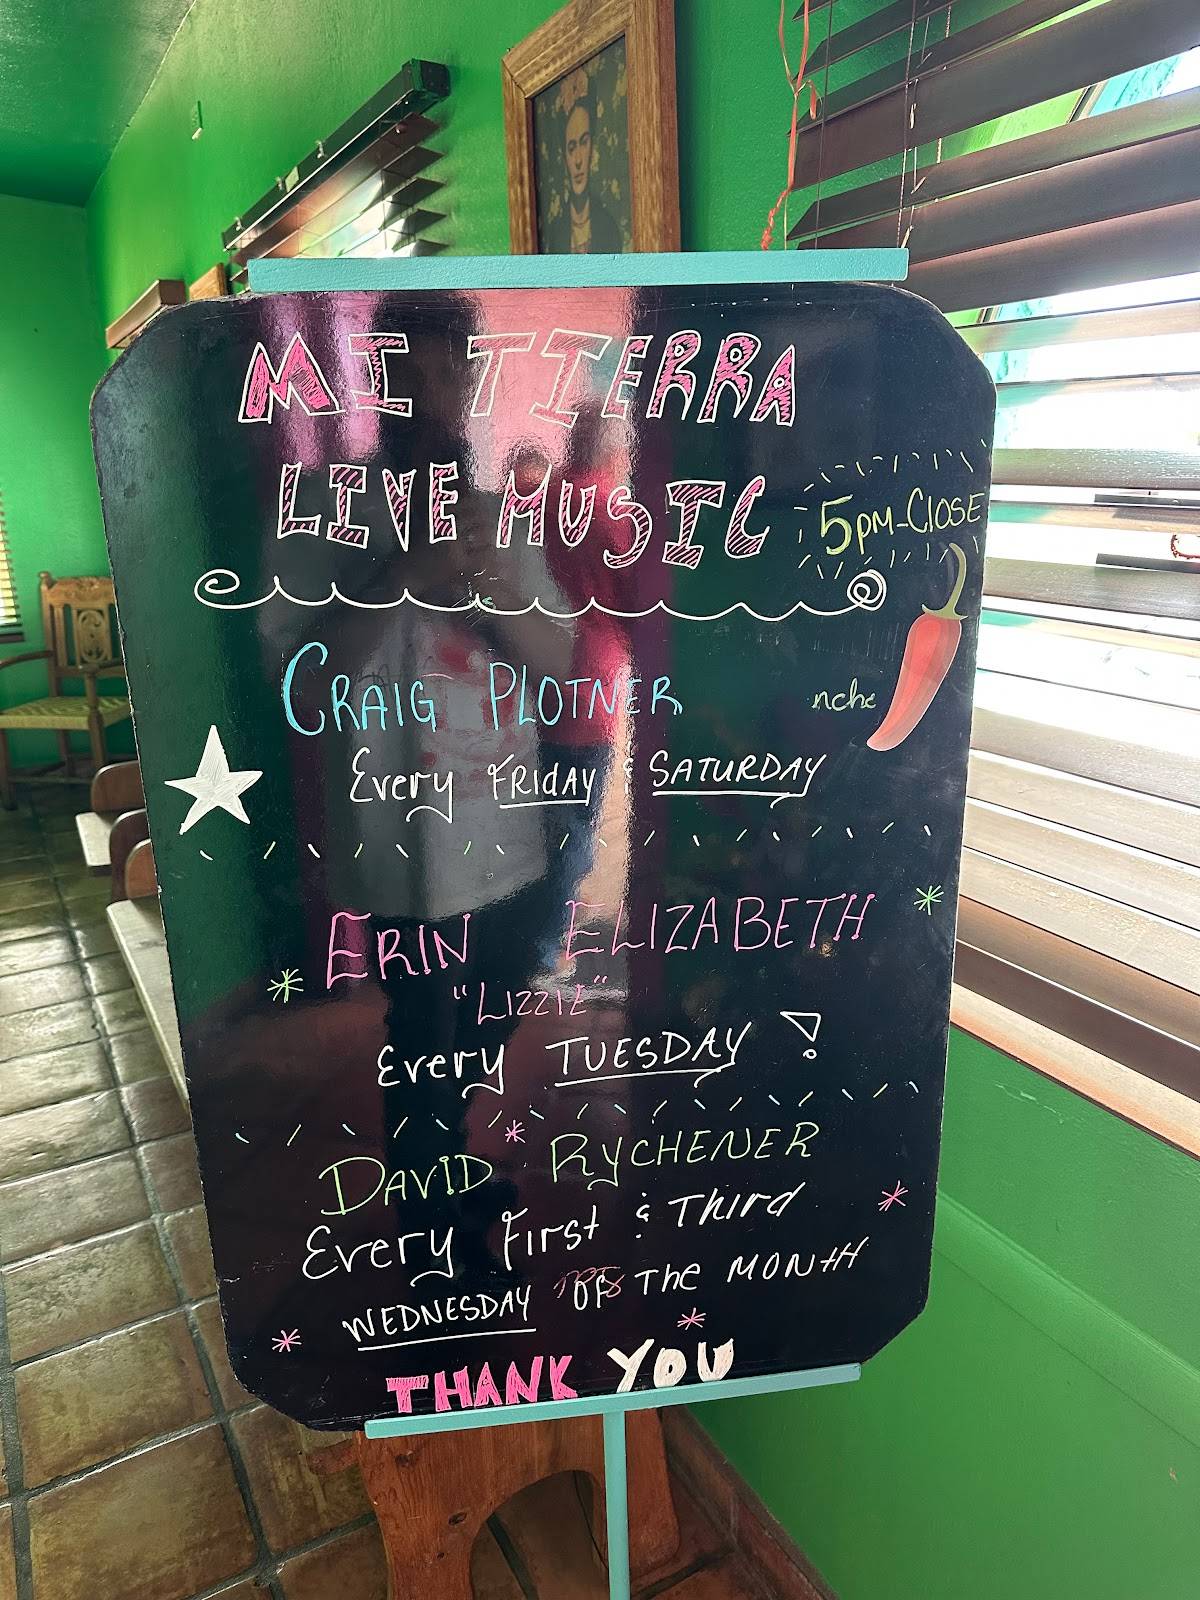 MI TIERRA
LIVE MUSIC
5PM-CLOSE
CRAIG PLOTNER
Every FRIDAY & SATURDAY
ERIN ELIZABETH
"LIZZIE"
Every TUESDAY!
DAVID RYCHENER
Every First & Third
WEDNESDAY OF The MONTH
THANK YOU